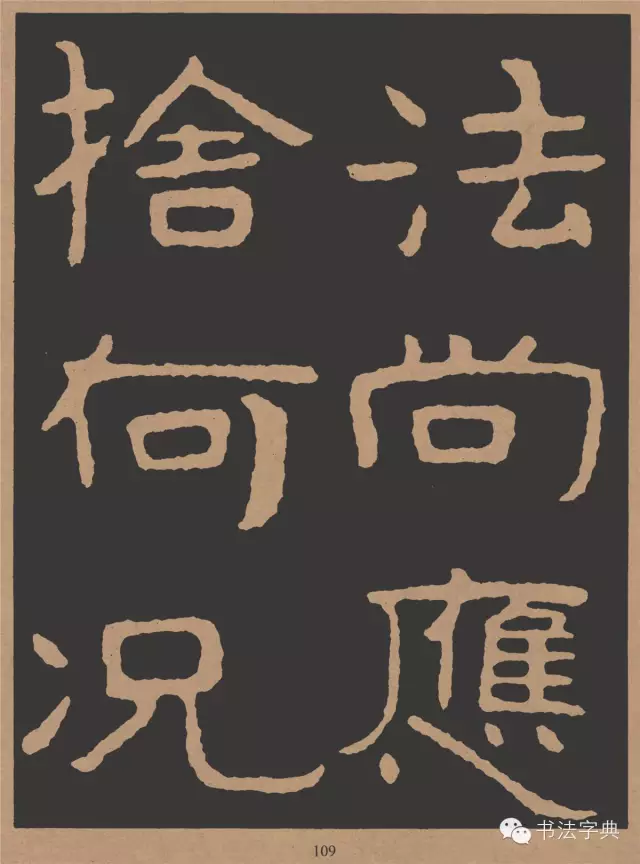 法尚應
捨何况
109
书法字典